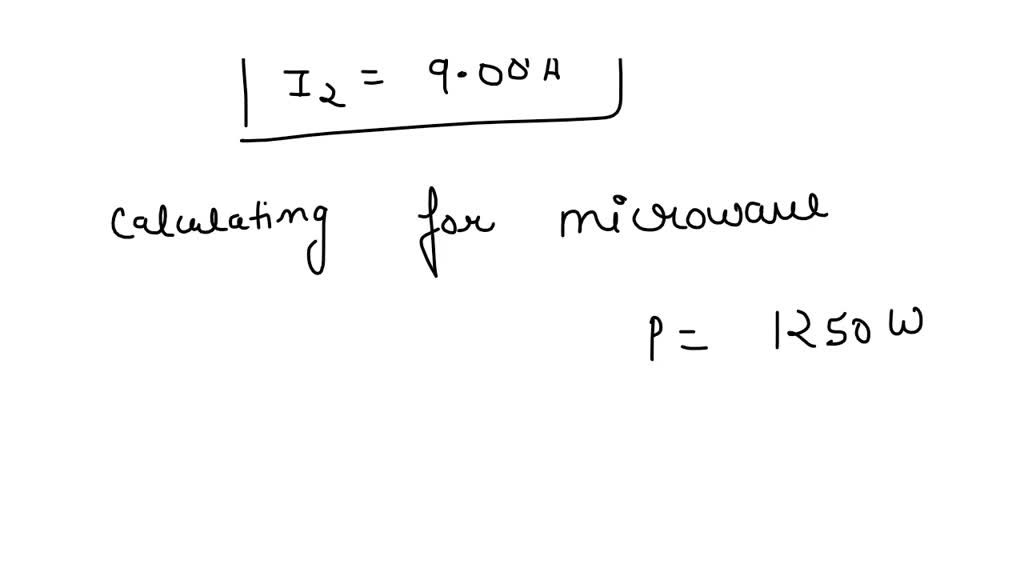 I2 = 9.00A
Calculating for microwave
P = 1250 W